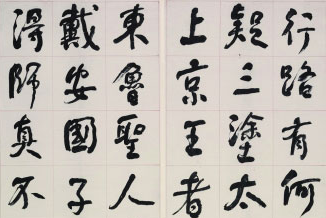 行路有何
疑三塗太
上京王者
東魯聖人
戴安國子
得師真不